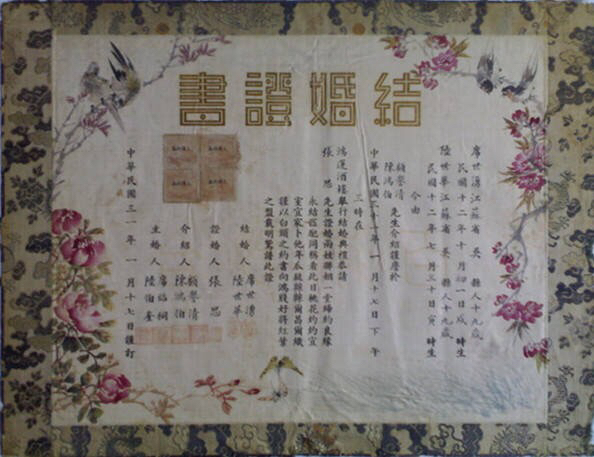 結婚證書
席世湧江蘇省 吳 縣人十九歲
民國十二年十月初一日戌時生
陸世華江蘇省 吳 縣人十九歲
民國十二年七月三十日寅時生
今由
顧馨清
陳鴻伯 先生介紹謹詹於
中華民國三十一年一月十七日下午
三時在
鴻運酒樓舉行結婚典禮恭請
張 思 先生證婚兩姓聯姻一堂締約良緣
永結匹配同稱看此日桃花灼灼宜
室宜家卜他年瓜瓞緜緜爾昌爾熾
謹以白頭之約書向鴻牋好將紅葉
之盟載明鴛譜此證
結婚人 席世湧
陸世華
證婚人 張 思
介紹人 顧馨清
陳鴻伯
主婚人 席
陸伯奎
中華民國三一年一月十七日謹訂